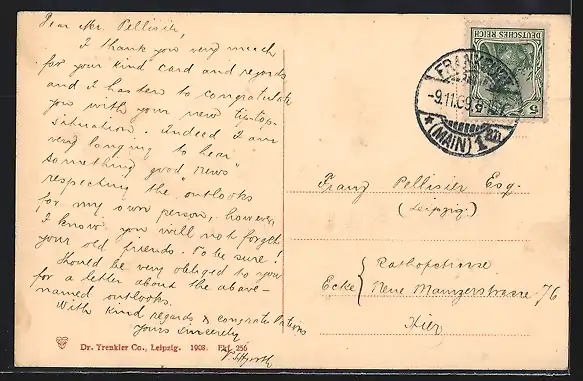 Dear Mr. Pellisier,
I thank you very much
for your kind card and regards
and I hasten to congratulate
you with your new tip-top-
situation. Indeed I am
very longing to hear
something good "news"
respecting the outlooks
for my own person, however,
I know you will not forget
your old friends. To be sure!
Should be very obliged to you
for a letter about the above-
named outlooks.
With kind regards & congratulations
Yours sincerely
Dr. Trenkler Co., Leipzig. 1908. Fkf. 256
DEUTSCHES REICH
5
FRANKFURT
-9.11.09.
*(MAIN) 1
Franz Pellisier Esq.
(Leipzig)
Ecke
Neue Mainzerstrasse 76
Hier